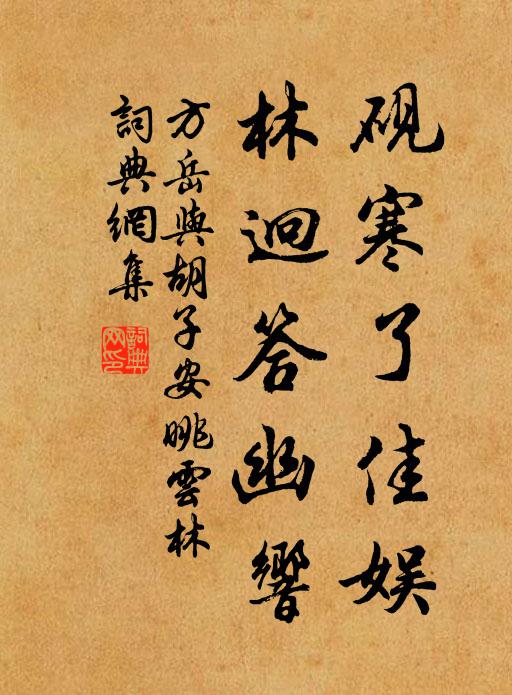 硯寒了佳娱
林迥答幽響
方岳與胡子安眺雲林
詞典網集
詞典網印